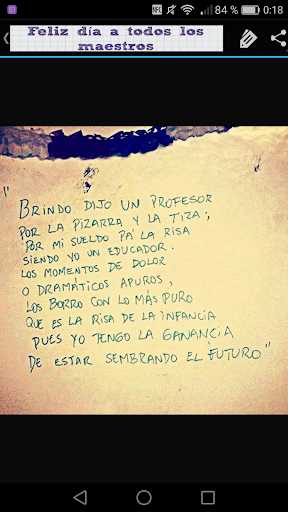 84 % 0:18
Feliz día a todos los
maestros
"BRINDO DIJO UN PROFESOR
POR LA PIZARRA Y LA TIZA;
POR MI SUELDO PA' LA RISA
SIENDO YO UN EDUCADOR.
LOS MOMENTOS DE DOLOR
O DRAMÁTICOS APUROS,
LOS BORRO CON LO MÁS PURO
QUE ES LA RISA DE LA INFANCIA
PUES YO TENGO LA GANANCIA
DE ESTAR SEMBRANDO EL FUTURO"